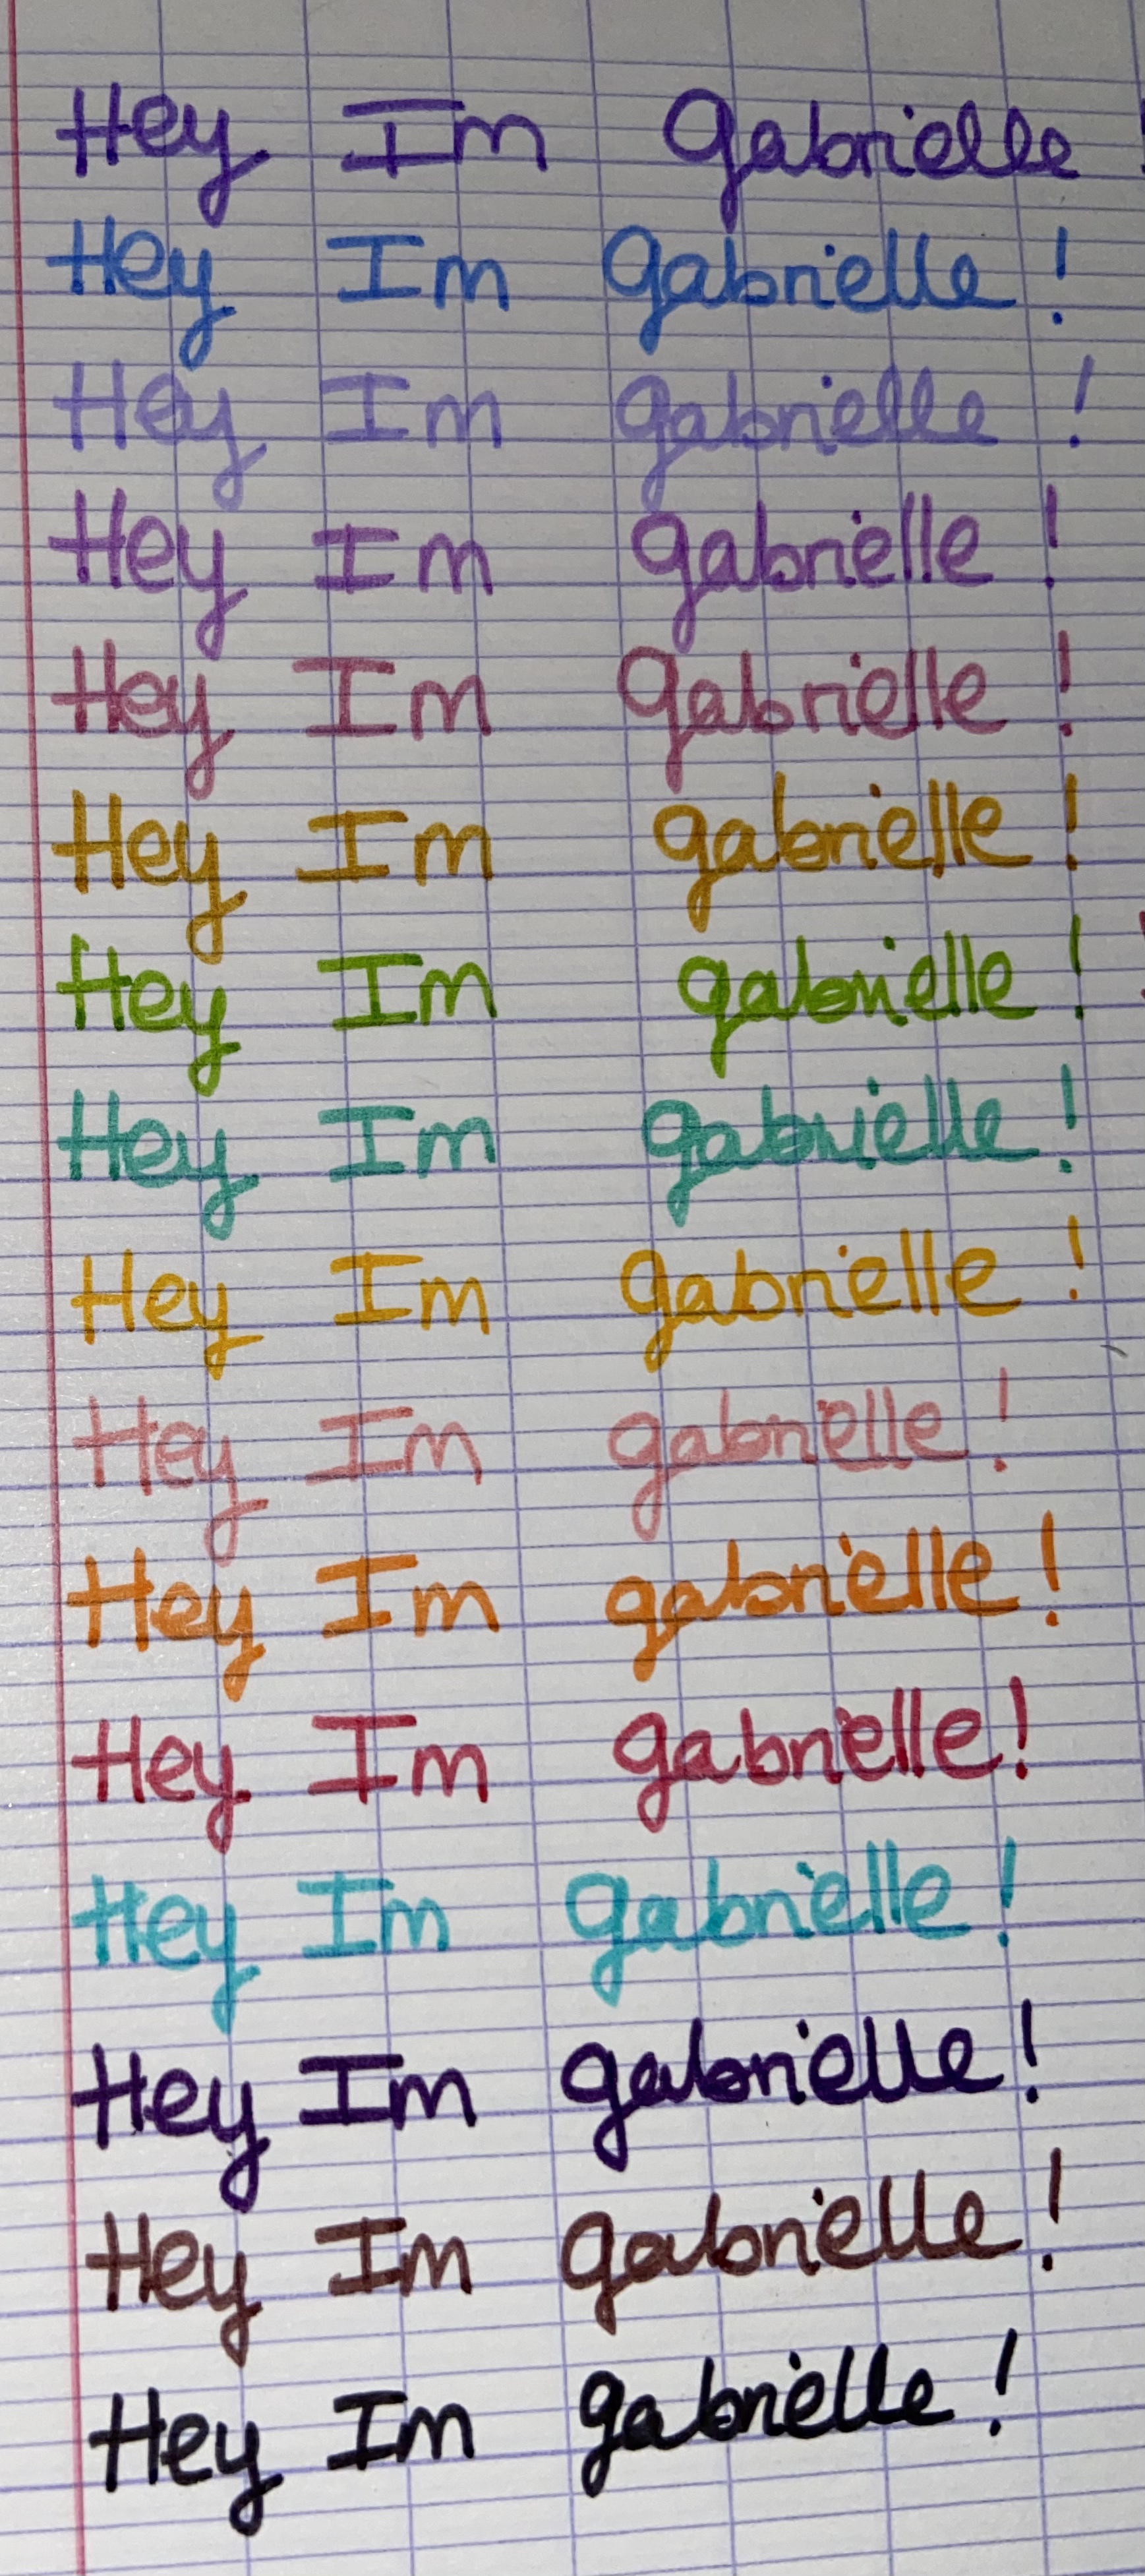 Hey Im Gabrielle !
Hey Im Gabrielle !
Hey Im Gabrielle !
Hey Im gabrielle !
Hey Im Gabrielle !
Hey Im gabrielle !
Hey Im gabrielle !
Hey Im gabrielle !
Hey Im gabrielle !
Hey Im gabrielle !
Hey Im gabrielle !
Hey Im gabrielle !
Hey Im gabrielle !
Hey Im gabrielle !
Hey Im gabrielle !
Hey Im gabrielle !